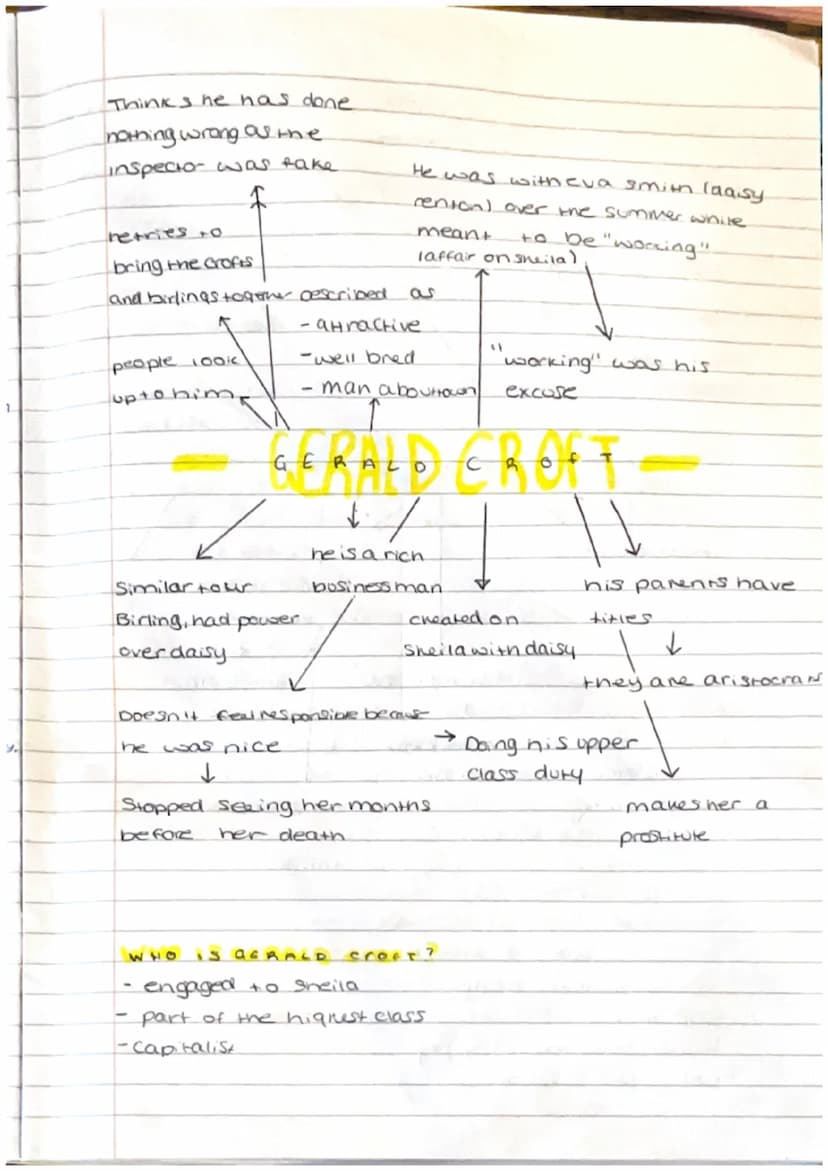 Thinks he has done
nothing wrong as the
inspector was fake
He was with Eva smith (daisy
renton) over the summer while
meant to be "working"
(affair on sheila)
retries to
bring the crofts
and birlings together
described as
- attractive
- well bred
- man about town
people look
up to him
"working" was his
excuse
- GERALD CROFT -
he is a rich
businessman
Similar to mr
Birling, had power
over daisy
cheated on
Sheila with daisy
his parents have
titles
they are aristocrats
Doesn't feel responsible because
he was nice
→ Doing his upper
class duty
Stopped seeing her months
before her death
makes her a
prostitute
WHO IS GERALD CROFT?
- engaged to sheila
- part of the highest class
- capitalist